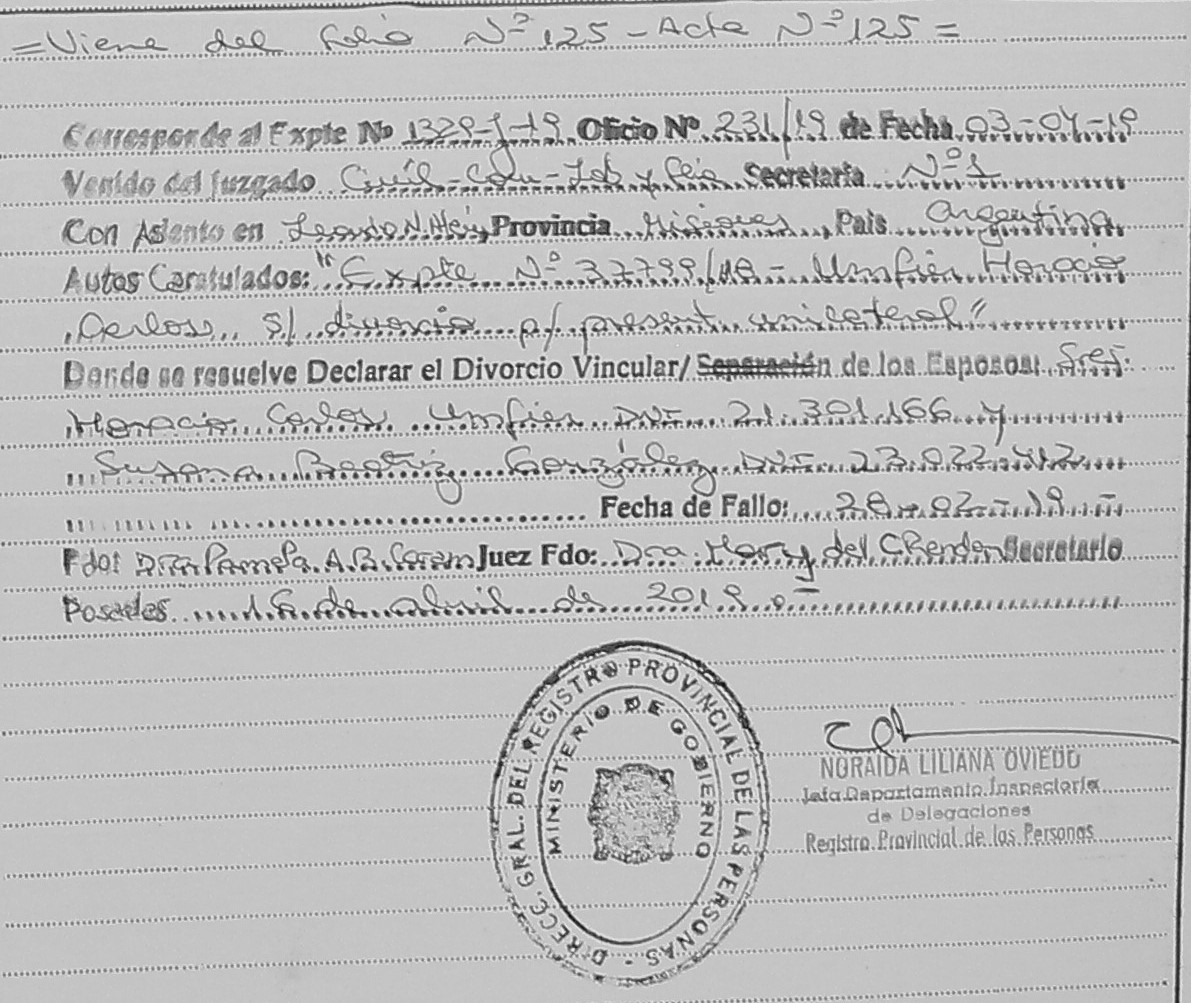 =Viene del folio Nº 125 - Acta Nº 125 =
Corresponde al Expte Nº 1329-J-19 Oficio Nº 231/19 de Fecha 03-04-19
Venido del Juzgado Civil-Com-Lab y Flia Secretaria Nº 1
Con Asiento en Leandro N. Alem, Provincia Misiones, Pais Argentina
Autos Caratulados: "Expte Nº 37799/ - Umfier Horacio
Carlos S/ divorcio p/ present. unilateral"
Donde se resuelve Declarar el Divorcio Vincular/ Separación de los Esposos: Sres.
Horacio Carlos Umfier DNI 21.301.166 y
Susana Beatriz González DNI 23.022.412
Fecha de Fallo: 28-02-19
Fdo: Dra Pamela A.B. Juez Fdo: Dra. Mary del C Rendon Secretario
Posadas 16 de abril de 2019.-
DIRECC. GRAL. DEL REGISTRO PROVINCIAL DE LAS PERSONAS -
MINISTERIO DE GOBIERNO
NORAIDA LILIANA OVIEDO
Jefa Departamento Inspectoría
de Delegaciones
Registro Provincial de las Personas